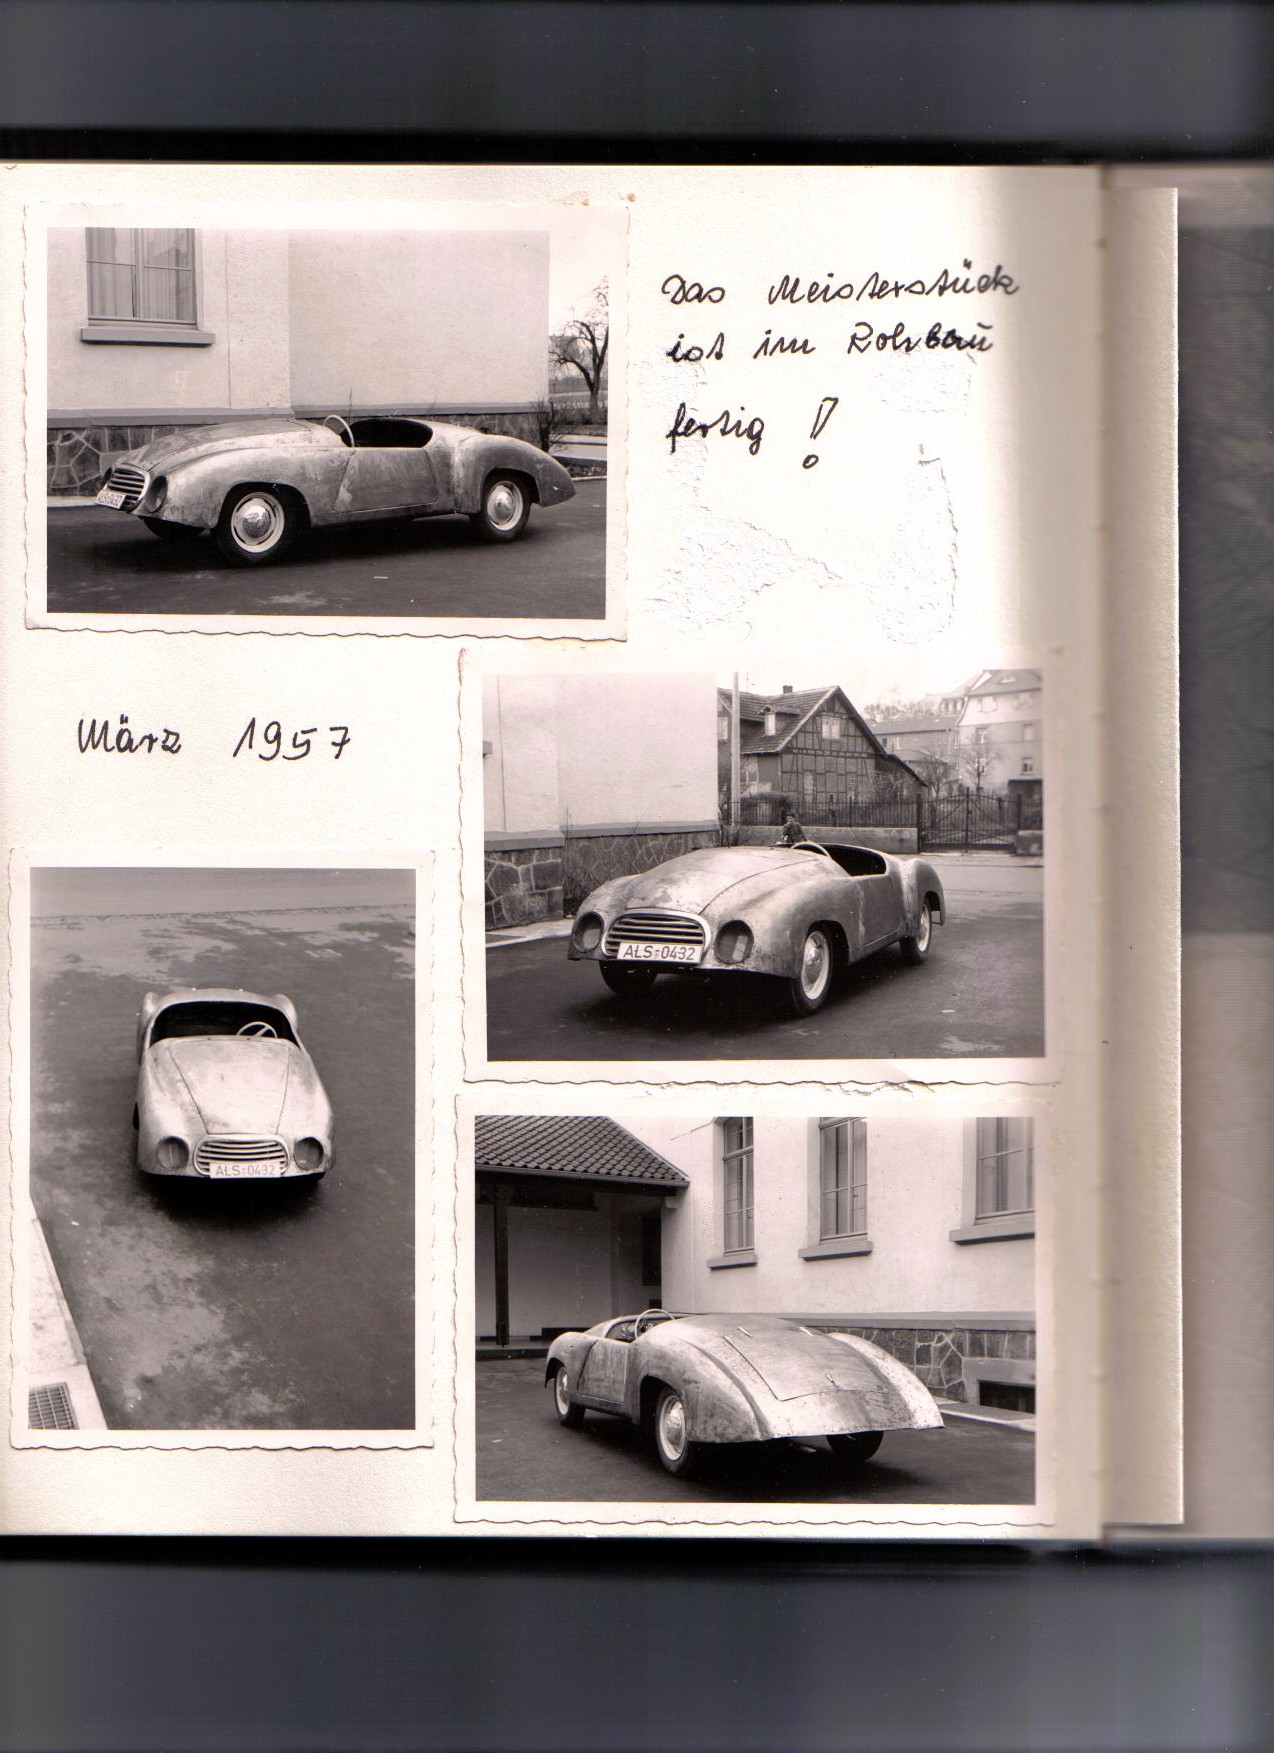 Das Meisterstück
ist im Rohbau
fertig !
März 1957
ALS-0432
ALS-0432
ALS-0432